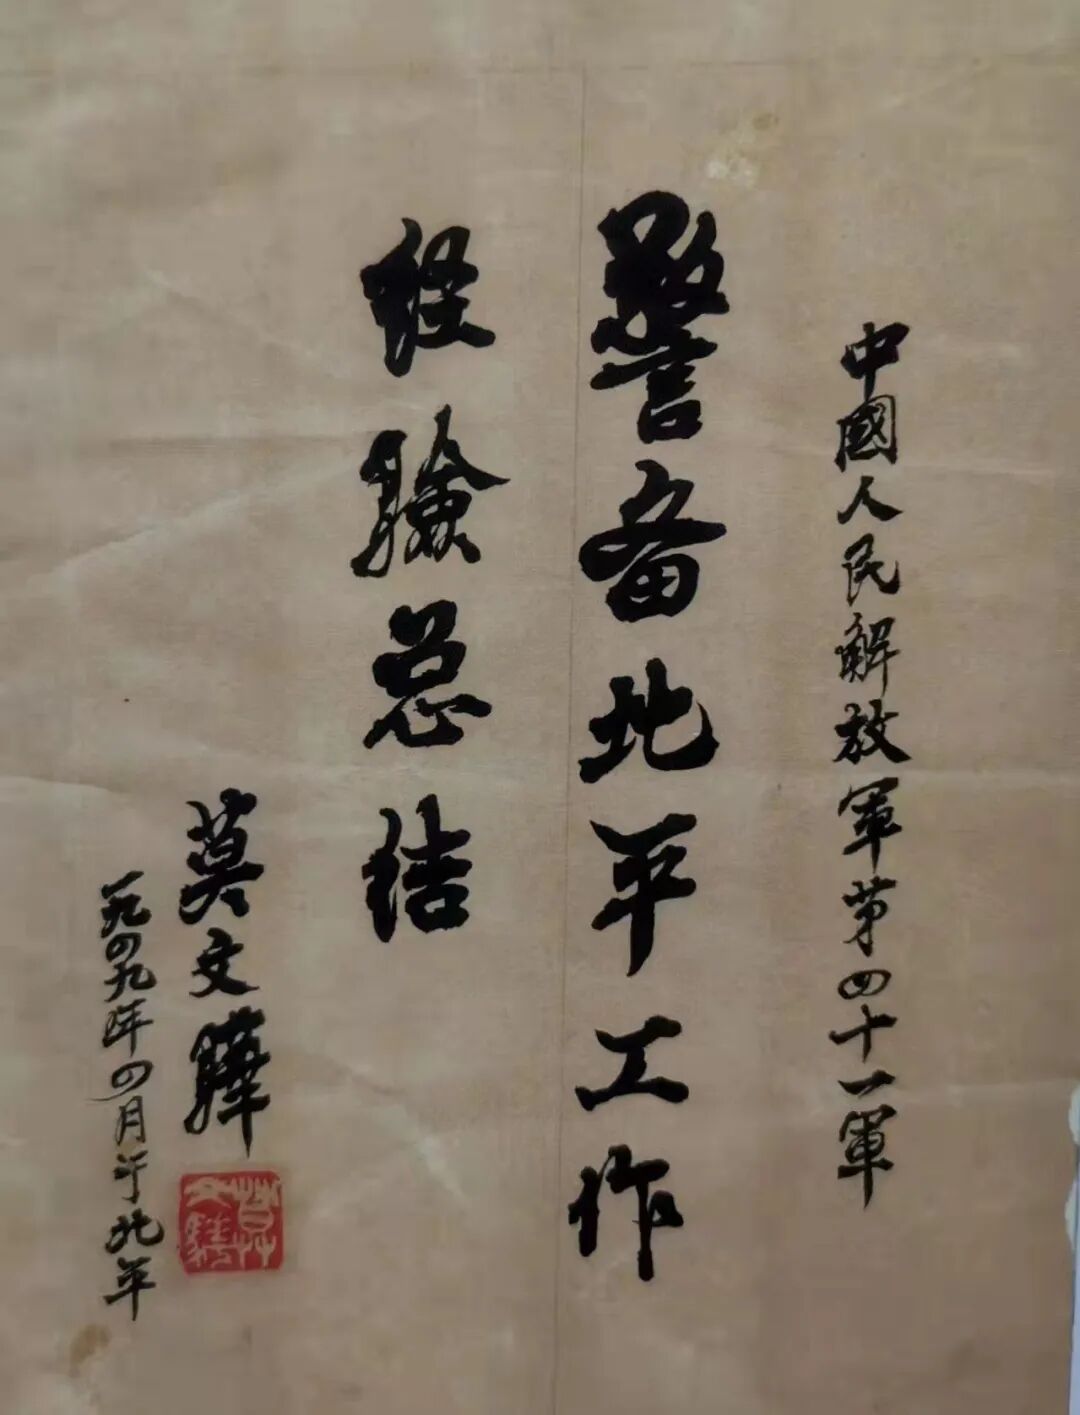 中國人民解放軍第四十一軍
警备北平工作
经验总结
莫文驊
一九四九年四月于北平
莫文驊